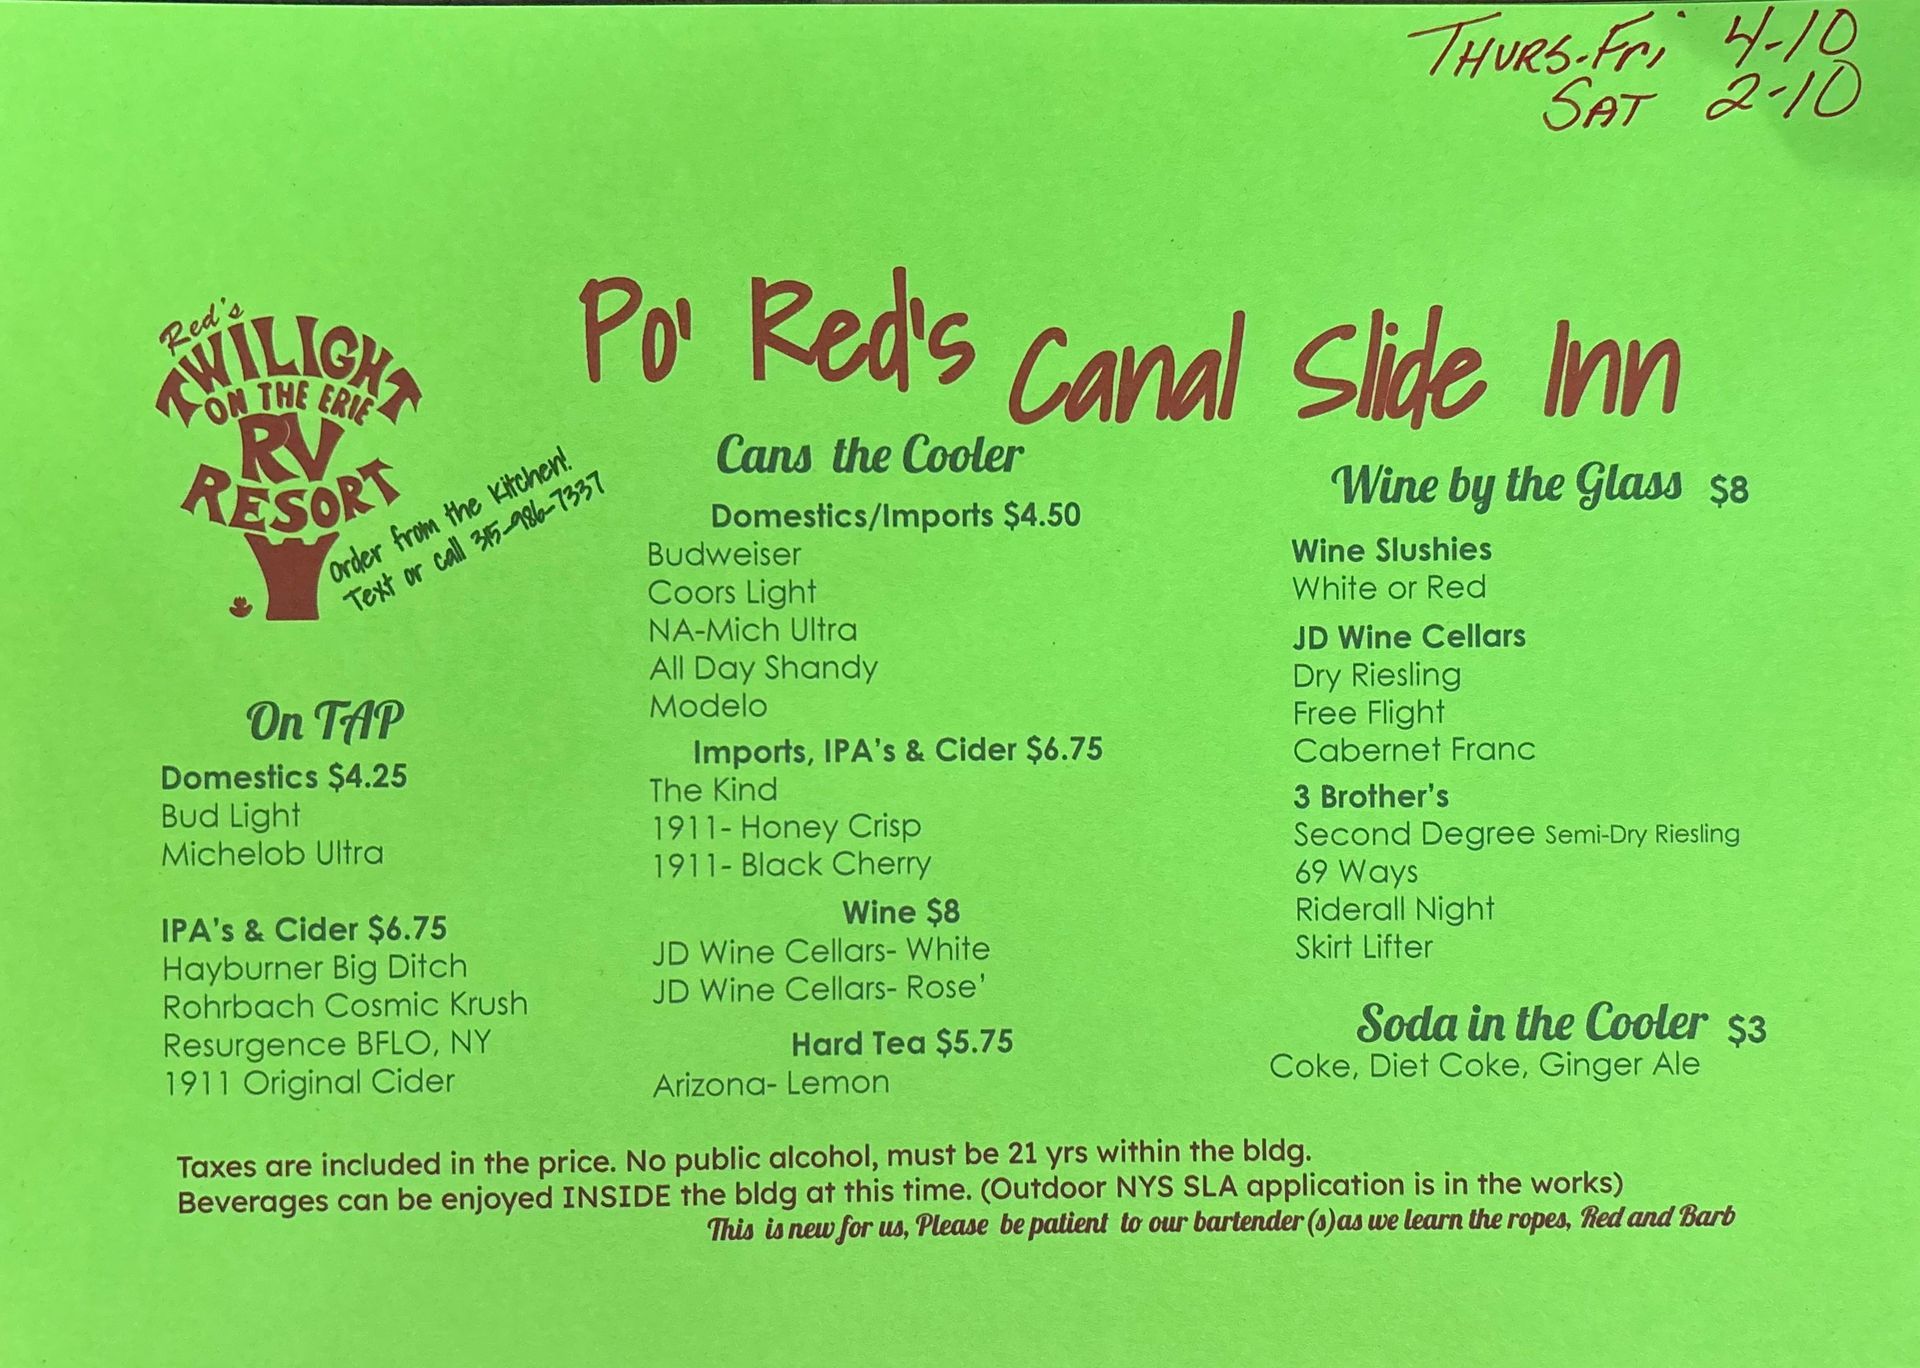 THURS-Fri 4-10
SAT 2-10
Po' Red's Canal Slide Inn
Red's
TWILIGHT
ON THE ERIE
RV
RESORT
Order from the Kitchen!
Text or call 315-986-7337
On TAP
Domestics $4.25
Bud Light
Michelob Ultra
IPA's & Cider $6.75
Hayburner Big Ditch
Rohrbach Cosmic Krush
Resurgence BFLO, NY
1911 Original Cider
Cans the Cooler
Domestics/Imports $4.50
Budweiser
Coors Light
NA-Mich Ultra
All Day Shandy
Modelo
Imports, IPA's & Cider $6.75
The Kind
1911- Honey Crisp
1911- Black Cherry
Wine $8
JD Wine Cellars- White
JD Wine Cellars- Rose'
Hard Tea $5.75
Arizona- Lemon
Wine by the Glass $8
Wine Slushies
White or Red
JD Wine Cellars
Dry Riesling
Free Flight
Cabernet Franc
3 Brother's
Second Degree Semi-Dry Riesling
69 Ways
Riderall Night
Skirt Lifter
Soda in the Cooler $3
Coke, Diet Coke, Ginger Ale
Taxes are included in the price. No public alcohol, must be 21 yrs within the bldg.
Beverages can be enjoyed INSIDE the bldg at this time. (Outdoor NYS SLA application is in the works)
This is new for us, Please be patient to our bartender(s)as we learn the ropes, Red and Barb